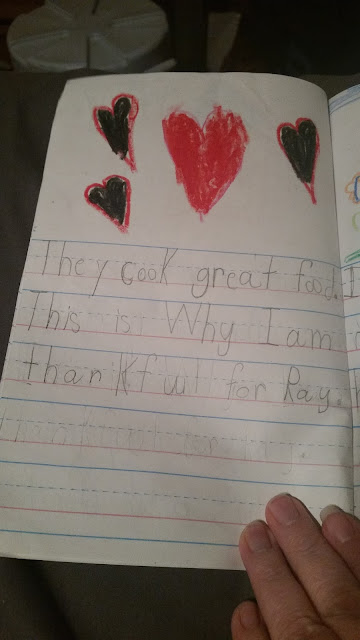 They cook great food.
This is Why I am
thankful for Ray.